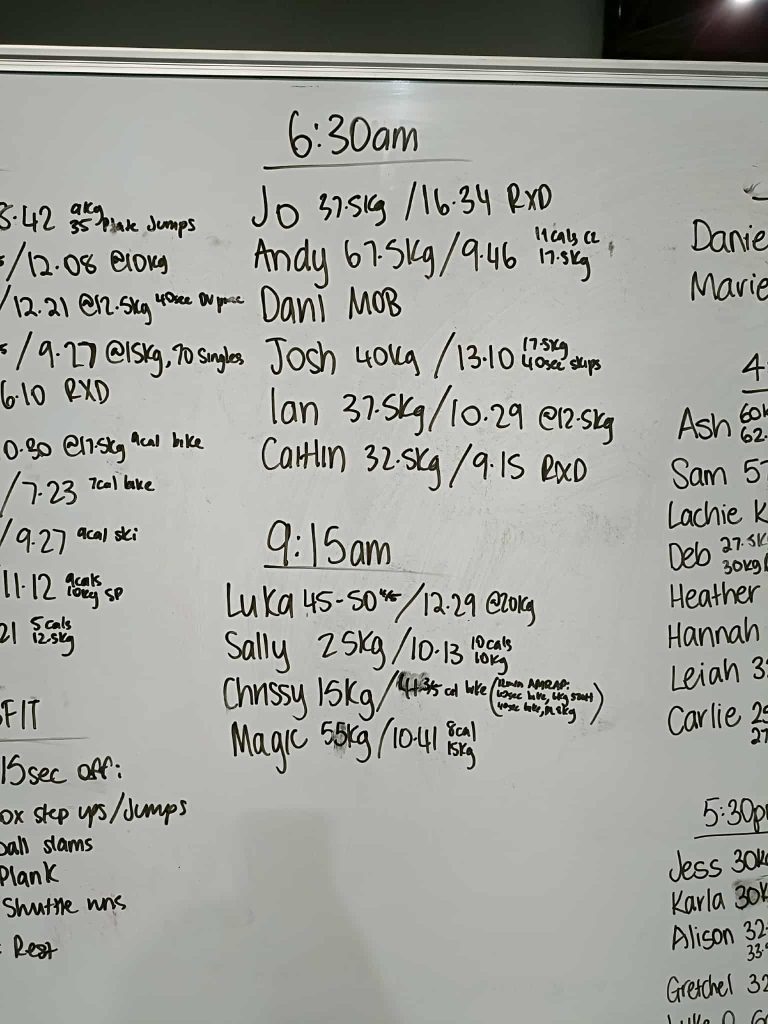 6:30am
Jo 37.5kg /16.34 RXD
Andy 67.5kg/9.46 11cals
17.5kg
Dani MOB
Josh 40kg /13.10 17.5kg
40sec skips
Ian 37.5kg/10.29 @12.5kg
Caitlin 32.5kg /9.15 RXD
9:15am
Luka 45-50 /12.29 @20kg
Sally 25kg /10.13 10cals
10kg
Chrissy 15kg/ cal bike (12min AMRAP:
bike,
40sec bike,
Magic 55kg /10.41 8cal
15kg
.42 9kg
35 Plate Jumps
/12.08 @10kg
/12.21 @12.5kg 40sec DU prac
/9.27 @15kg, 70 singles
6.10 RXD
0.30 @17.5kg 9cal bike
/7.23 7cal bike
/9.27 9cal ski
11.12 9cals
10kg SP
21 5cals
12.5kg
FIT
15sec off:
ox step ups/Jumps
ball slams
Plank
Shuttle runs
: Rest
Danie
Marie
4
Ash 60k
62.
Sam 57
Lachie K
Deb 27.5k
30kg
Heather
Hannah
Leiah 3
Carlie 2
27
5:30p
Jess 30k
Karla 30k
Alison 32
33
Gretchel 32